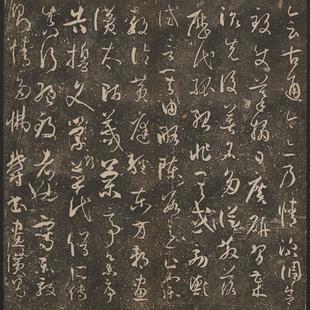 會古通今亦乃情深調合
致使摹搨日廣研習歲
滋先後著名多從散落
歷代孤紹非其效與
試言其由略陳數意止如樂
毅論黃庭經東方朔畫
讚太師箴蘭亭集序
告誓文斯並代俗所傳
真行絕致者也寫樂毅
則情多怫鬱書畫讚則